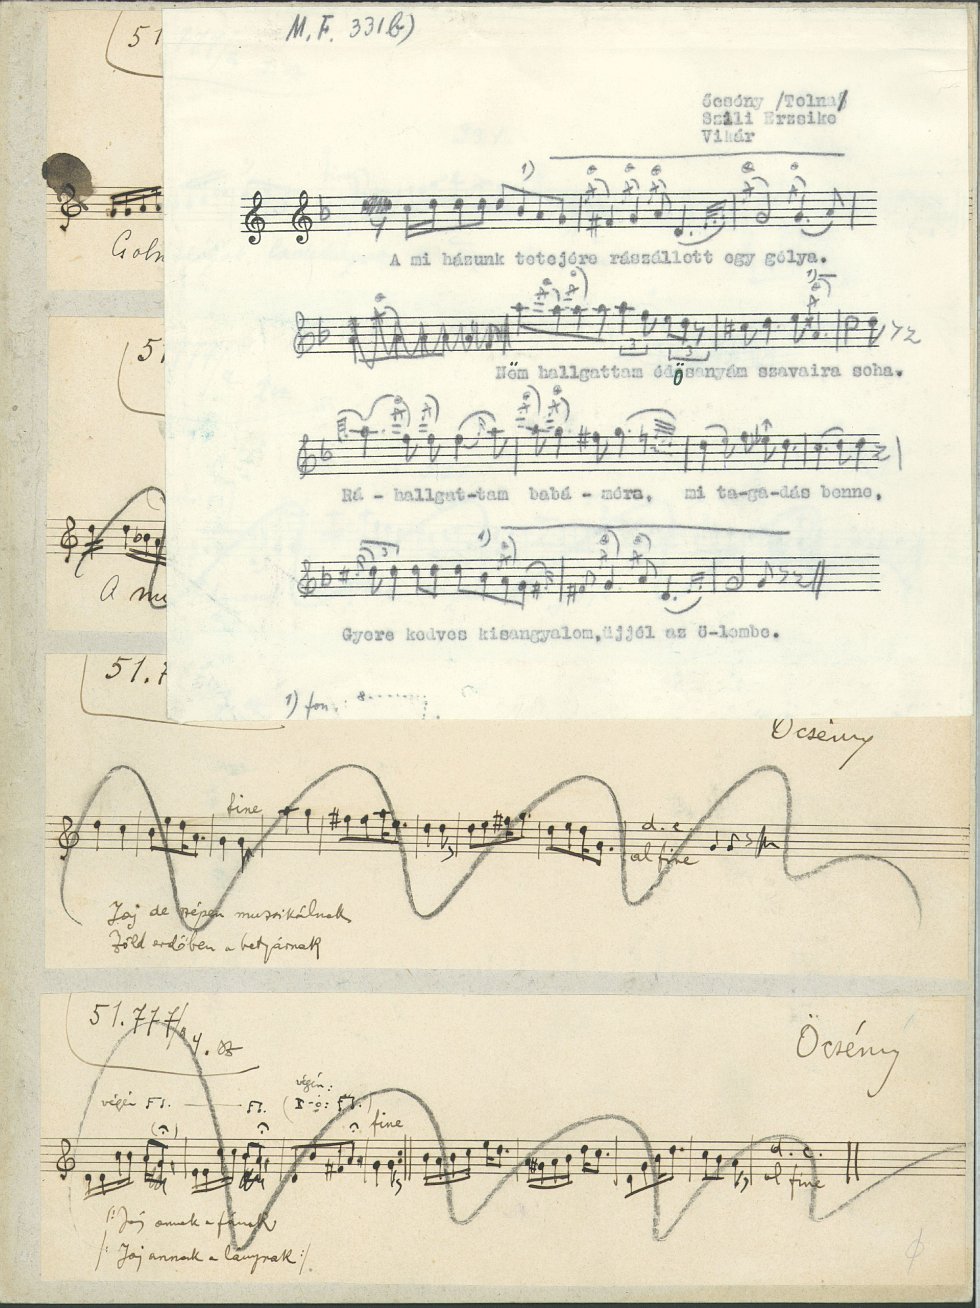 M.F. 331b)
51
őcsény /Tolna/
Szili Erzsike
Vikár
1)
Goln
A mi házunk tetejére rászállott egy gólya.
1)
51
3
3
Nöm hallgattam édösanyám szavaira soha.
Rá - hallgat-tam babá - móra, mi ta-ga-dás benne,
1)
3
A mi
Gyere kedves kisangyalom, üjjél az ö-lembe.
51.7
1) fon.:
Öcsény
fine
d. c.
al fine
Jaj de szépen muzsikálnak
Zöld erdőben a betyárnak
51.777/a
Öcsény
végén
végén:
fine
d. c.
al fine
/: Jaj annak a fának
/: Jaj annak a lánynak :/